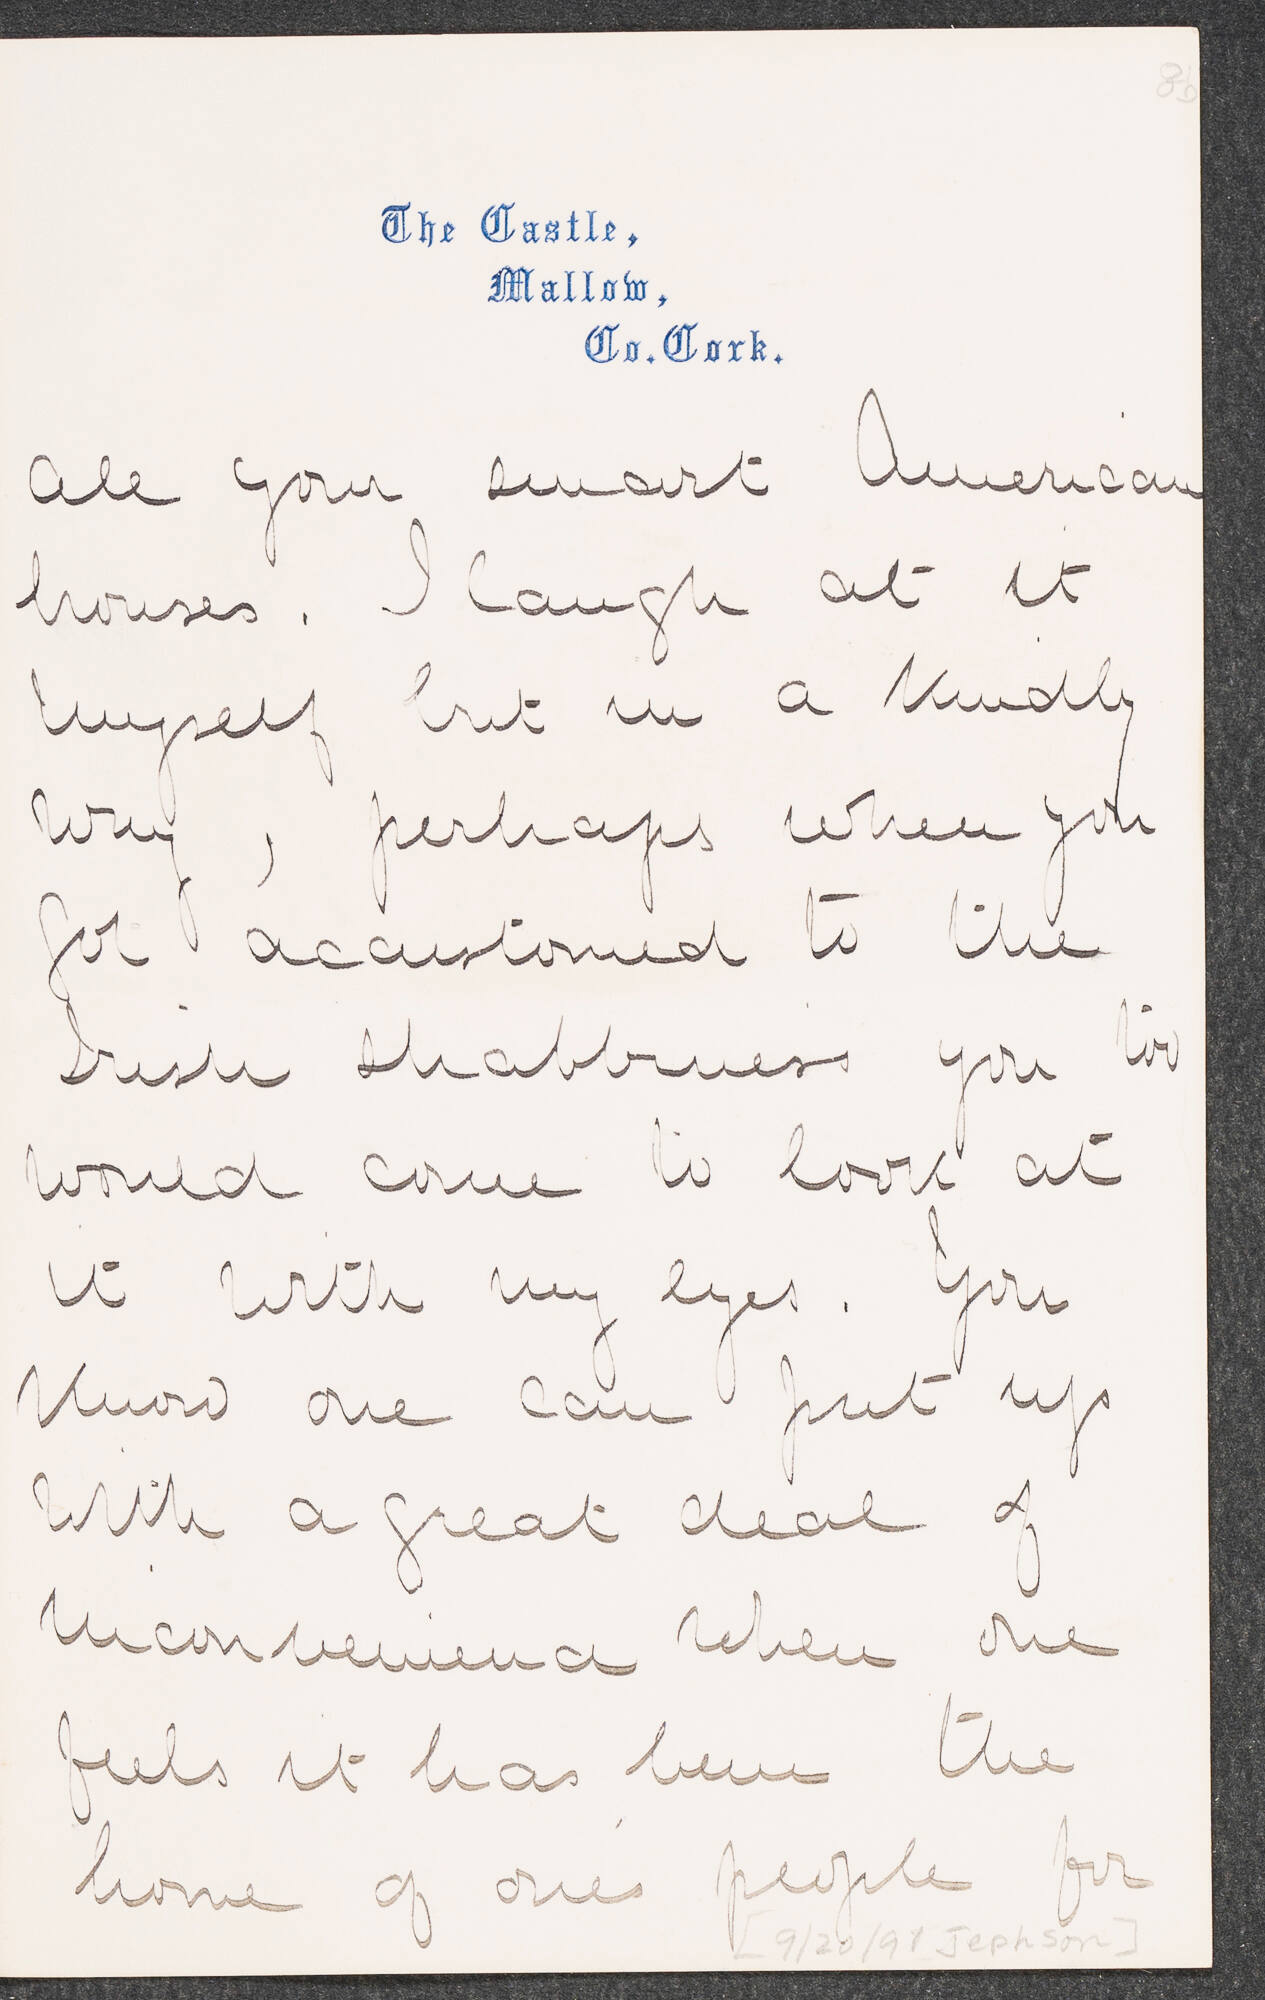 8b
The Castle,
Mallow,
Co. Cork.
all your smart American
houses. I laugh at it
myself but in a kindly
way, perhaps when you
got accustomed to the
Irish shabbiness you too
would come to look at
it with my eyes. You
know one can put up
with a great deal of
inconvenience when one
feels it has been the
home of one's people for
[9/20/91 Jephson]